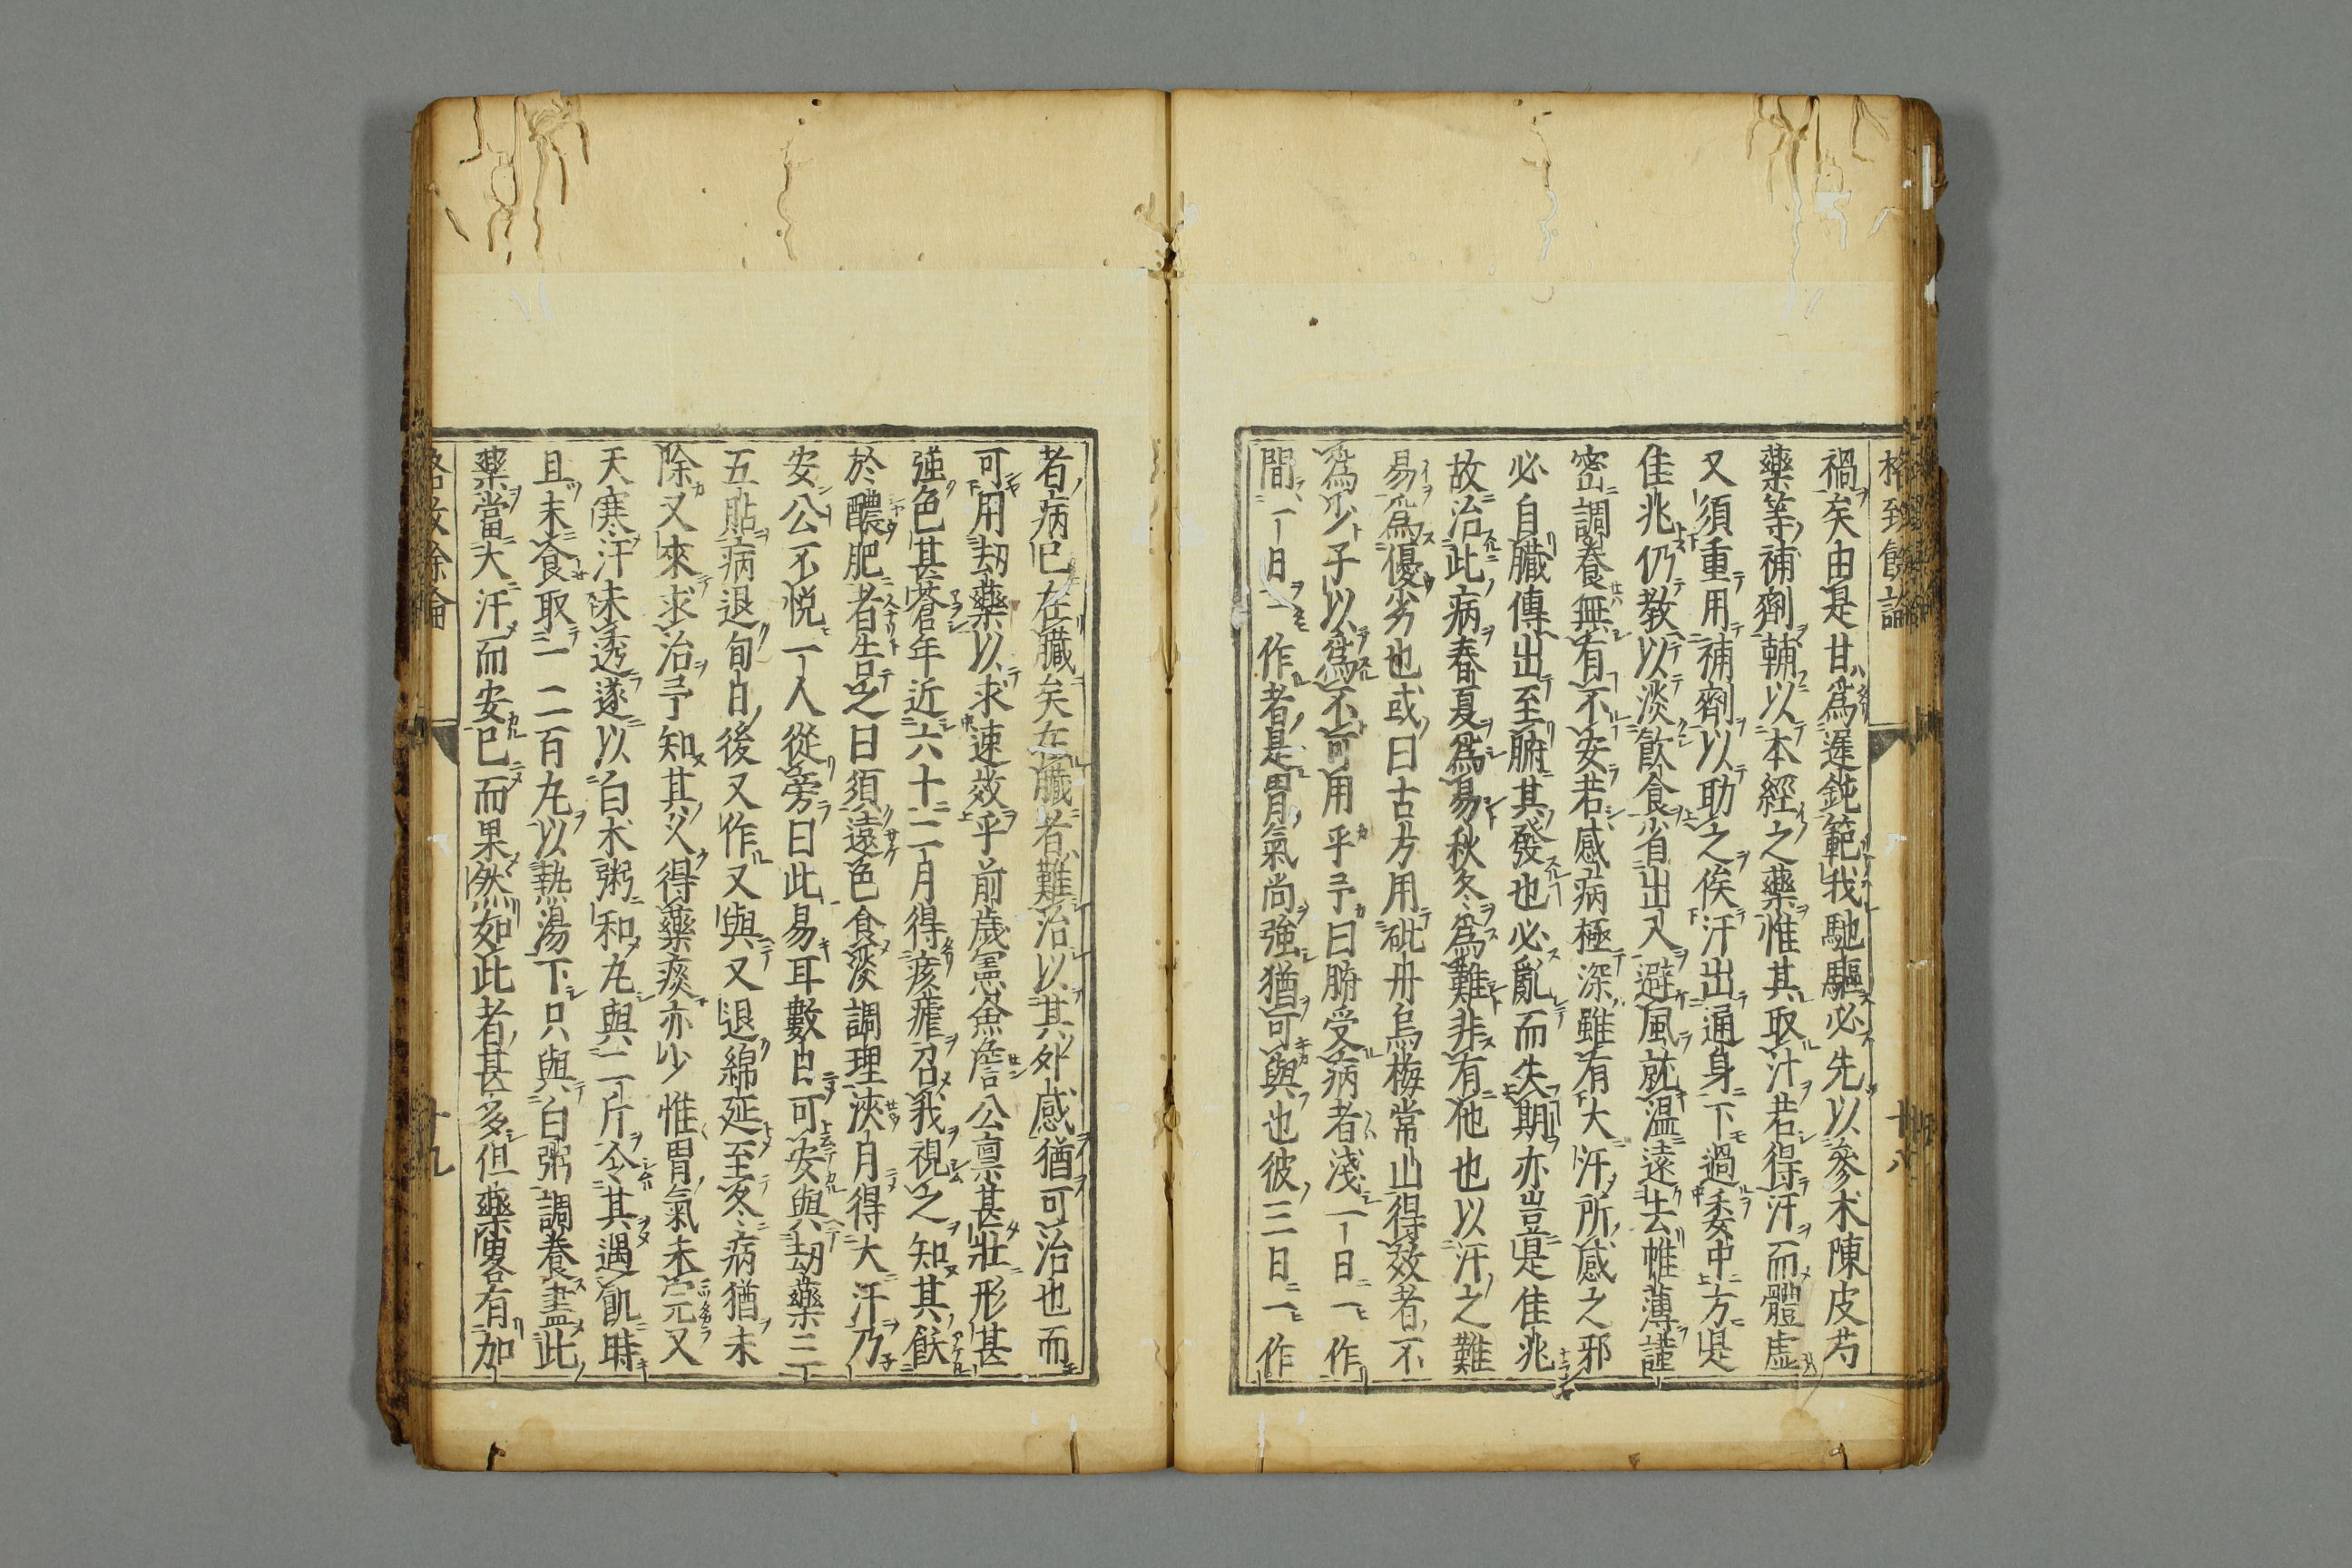 格致餘論
十八
禍矣由是甘爲遲鈍範我馳驅必先以參朮陳皮芍
藥等補劑輔以本經之藥惟其取汁若得汗而體虛
又須重用補劑以助之俟汗出通身下過委中方是
佳兆仍教以淡飲食省出入避風就温遠去帷薄謹
密調養無有不安若感病極深雖有大汗所感之邪
必自臟傳出至腑其發也必亂而失期亦豈是佳兆
故治此病春夏爲易秋冬爲難非有他也以汗之難
易爲優劣也或曰古方用砒丹烏梅常山得效者不
爲少子以爲不可用乎予曰腑受病者淺一日一作
間一日一作者是胃氣尚強猶可與也彼三日一作
者病已在臟矣在臟者難治以其外感猶可治也而
可用劫藥以求速效乎前歲憲僉詹公稟甚壯形甚
強色甚蒼年近六十二月得痎瘧召我視之知其飫
於醲肥者告之曰須遠色食淡調理浹月得大汗乃
安公不悦一人從旁曰此易耳數日可安與劫藥三
五貼病退旬日後又作又與又退綿延至冬病猶未
除又來求治予知其久得藥痰亦少惟胃氣未完又
天寒汗未透遂以白朮粥和丸與二斤令其遇飢時
且未食取一二百丸以熱湯下只與白粥調養盡此
藥當大汗而安已而果然如此者甚多但藥畧有加
格致餘論
十九